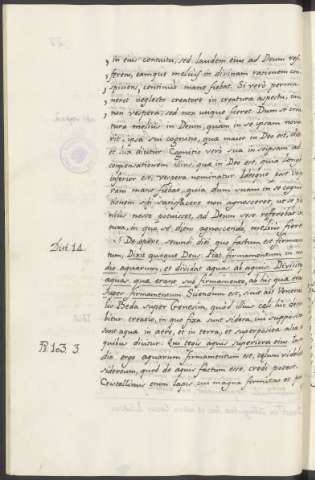 in eius contuitu, sed laudem eius ad Deum re-
ferens, eamque melius in divinam rationem con-
spiciens, continuo mane fiebat. Si vero perma-
neret neglecto creatore in creatura aspectu, iam
non vespera, sed nox utique fieret. Dum se crea-
tura melius in Deum, quam in se ipsam nove-
rit: ipsa sui cognitio, quae maior in Deo est, dies
et lux dicitur. Cognitio vero sua in se ipsam ad
comparationem illius, quae in Deo est, quia longe
inferior est, vespera nominatur. Ideoque post ves-
peram mane fiebat, quia dum suam in se cogni-
tionem sibi satisfacere non agnosceret, ut se ple-
nius nosse potuisset, ad Deum sese referebat crea-
tura, in quo se diem agnoscendo, melius fieret
De opere secundi diei quo factum est firmamen-
Dist 14.
tum, Dixit quoque Deus: Fiat firmamentum in me-
dio aquarum, et dividat aquas ab aquis. Divisitque
aquas quae erant sub firmamento, ab his quae erant
super firmamentum. Sciendum est, sicut ait Venera-
bilis Beda super Genesim, quod illius caeli hic des-
cribitur creatio, in quo fixa sunt sidera, cui supposita
sunt aquae in aere, et in terra, et superpositae aliae
Ps 103. 3.
quibus dicitur: Qui tegis aquis superiora eius. In me-
dio ergo aquarum firmamentum est, caelum videlicet
sidereum, quod de aquis factum esse, credi potest.
Cristallinus enim lapis, cui magna firmitas et per